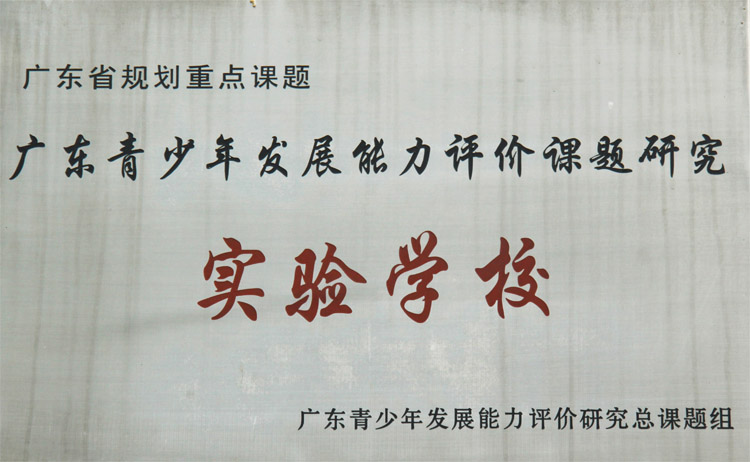 广东省规划重点课题
广东青少年发展能力评价课题研究
实验学校
广东青少年发展能力评价研究总课题组